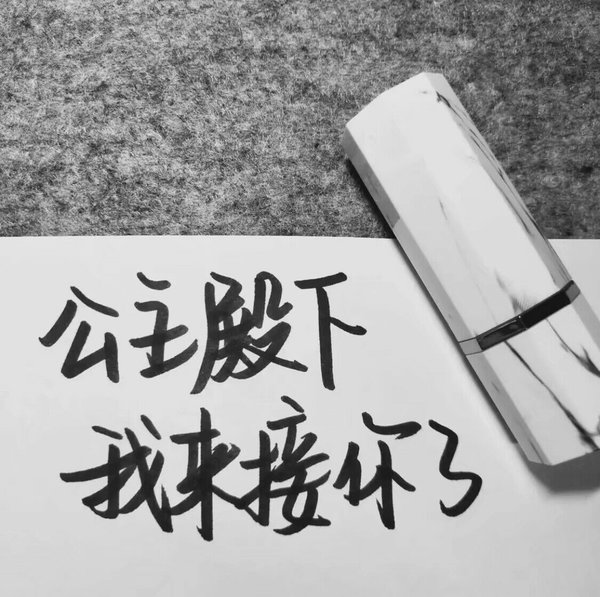 公主殿下
我来接你了